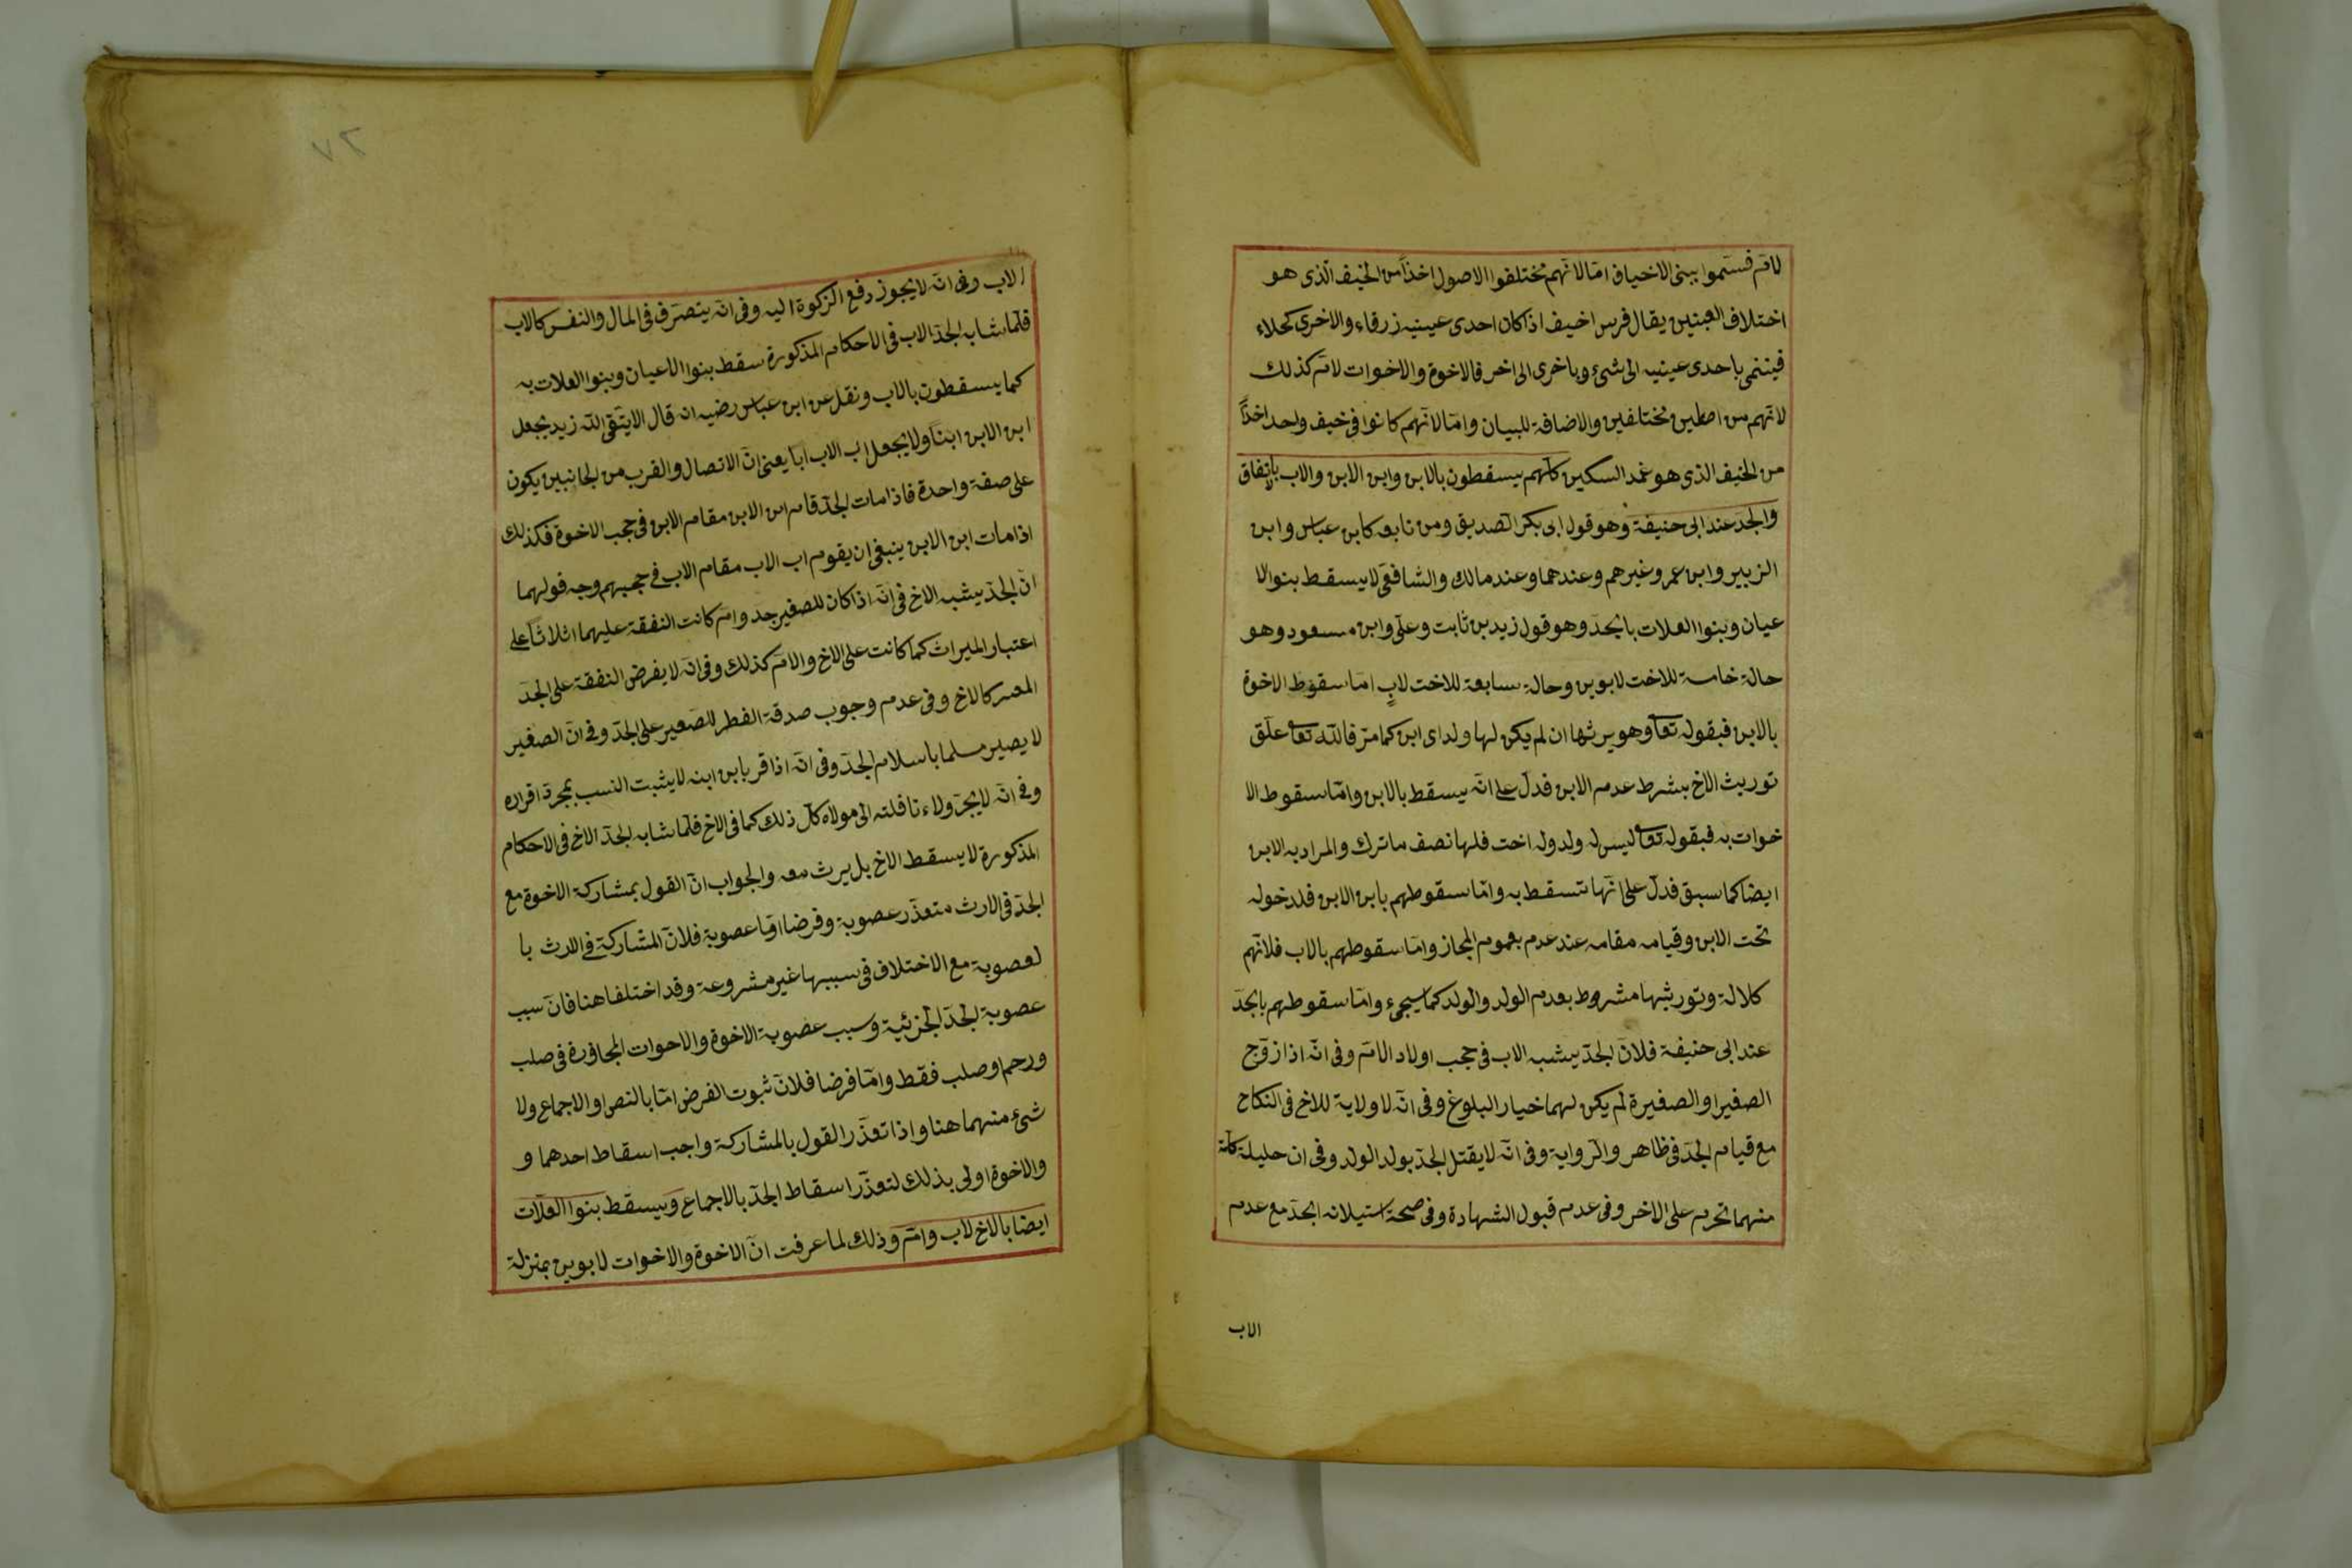 لام فسموا ببنى الاخياف اما لانهم مختلفوا الاصول اخذا من الخيف الذى هو
اختلاف العينين يقال فرس اخيف اذا كان احدى عينيه زرقاء والاخرى كحلاء
فينتمى باحدى عينيه الى شئ وباخرى الى اخر فالاخوة والاخوات لام كذلك
لانهم من اصلين مختلفين والاضافة للبيان واما لانهم كانوا فى خيف واحد اخذا
من الخيف الذى هو غمد السكين كلهم يسقطون بالابن وابن الابن والاب باتفاق
والجد عند ابى حنيفة وهو قول ابى بكر الصديق ومن تابعه كابن عباس وابن
الزبير وابن عمر وغيرهم وعندهما وعند مالك والشافعى لا يسقط بنوا الا
عيان وبنوا العلات بالجد وهو قول زيد بن ثابت وعلى وابن مسعود وهو
حالة خامسة للاخت لابوين وحالة سابعة للاخت لاب اما سقوط الاخوة
بالابن فبقوله تعا وهو يرثها ان لم يكن لها ولد اى ابن كما مر فالله تعا علق
توريث الاخ بشرط عدم الابن فدل على انه يسقط بالابن واما سقوط الا
خوات به فبقوله تعا ليس له ولد وله اخت فلها نصف ما ترك والمراد به الابن
ايضا كما سبق فدل على انها تسقط به واما سقوطهم بابن الابن فلدخوله
تحت الابن وقيامه مقامه عند عدم بعموم المجاز واما سقوطهم بالاب فلانهم
كلالة وتوريثها مشروط بعدم الولد والولد كما سيجىء واما سقوطهم بالجد
عند ابى حنيفة فلان الجد يشبه الاب فى حجب اولاد الام وفى انه اذا زوج
الصغير او الصغيرة لم يكن لهما خيار البلوغ وفى انه لا ولاية للاخ فى النكاح
مع قيام الجد فى ظاهر والرواية وفى انه لا يقتل الجد بولد الولد وفى ان حليلة كل
منهما تحرم على الاخر وفى عدم قبول الشهادة وفى صحة استيلاد الجد مع عدم
الاب
٧٢
الاب وفى انه لا يجوز دفع الزكوة اليه وفى انه يتصرف فى المال والنفس كالاب
فلما شابه الجد الاب فى الاحكام المذكورة سقط بنوا الاعيان وبنوا العلات به
كما يسقطون بالاب ونقل عن ابن عباس رضيه انه قال الا يتقى الله زيد يجعل
ابن الابن ابنا ولا يجعل اب الاب ابا يعنى ان الاتصال والقرب من الجانبين يكون
على صفة واحدة فاذا مات الجد قام ابن الابن مقام الابن فى حجب الاخوة فكذلك
اذا مات ابن الابن ينبغى ان يقوم اب الاب مقام الاب فى حجبهم وجه قولهما
ان الجد يشبه الاخ فى انه اذا كان للصغير جد وام كانت النفقة عليهما اثلاثا على
اعتبار الميراث كما كانت على الاخ والام كذلك وفى انه لا يفرض النفقة على الجد
المعسر كالاخ وفى عدم وجوب صدقة الفطر للصغير على الجد وفى ان الصغير
لا يصير مسلما باسلام الجد وفى انه اذا قر بابن ابنه لا يثبت النسب بمجرد اقراره
وفى انه لا يجر ولاء نافلته الى مولاه كل ذلك كما فى الاخ فلما شابه الجد الاخ فى الاحكام
المذكورة لا يسقط الاخ بل يرث معه والجواب ان القول بمشاركة الاخوة مع
الجد فى الارث متعذر عصوبة وفرضا اما عصوبة فلان المشاركة فى الارث با
لعصوبة مع الاختلاف فى سببها غير مشروعة وقد اختلفا هنا فان سبب
عصوبة الجد الجزئية وسبب عصوبة الاخوة والاخوات المجاورة فى صلب
ورحم او صلب فقط واما فرضا فلان ثبوت الفرض اما بالنص او الاجماع ولا
شئ منهما هنا واذا تعذر القول بالمشاركة واجب اسقاط احدهما و
والاخوة اولى بذلك لتعذر اسقاط الجد بالاجماع ويسقط بنوا العلات
ايضا بالاخ لاب وام وذلك لما عرفت ان الاخوة والاخوات لابوين بمنزلة